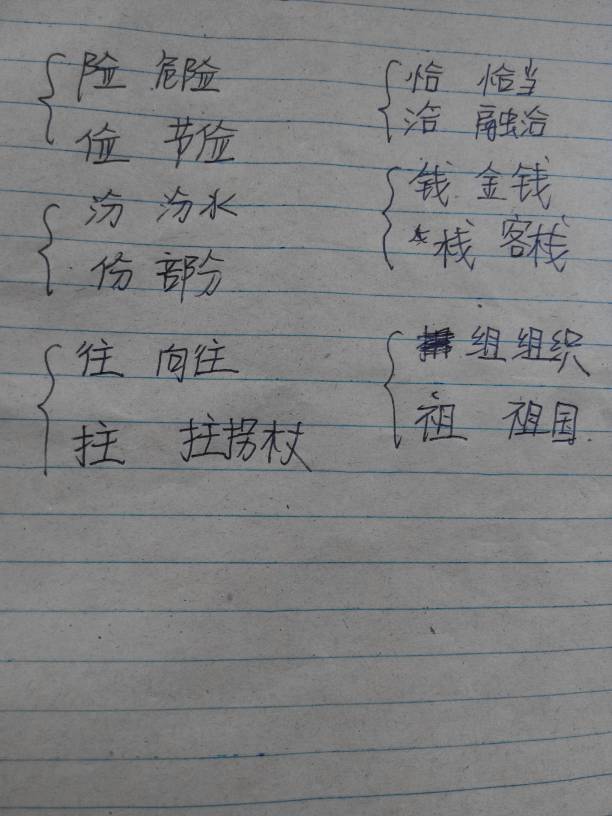 险 危险
俭 节俭
汾 汾水
份 部分
往 向往
拄 拄拐杖
恰 恰当
洽 融洽
钱 金钱
栈 客栈
组 组织
祖 祖国.